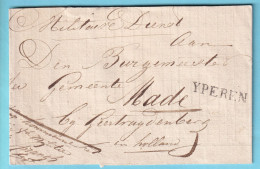 Militaire Dienst
Aan
Den Burgemeester
der Gemeente
YPEREN
Made
by Geertruydenberg
in holland